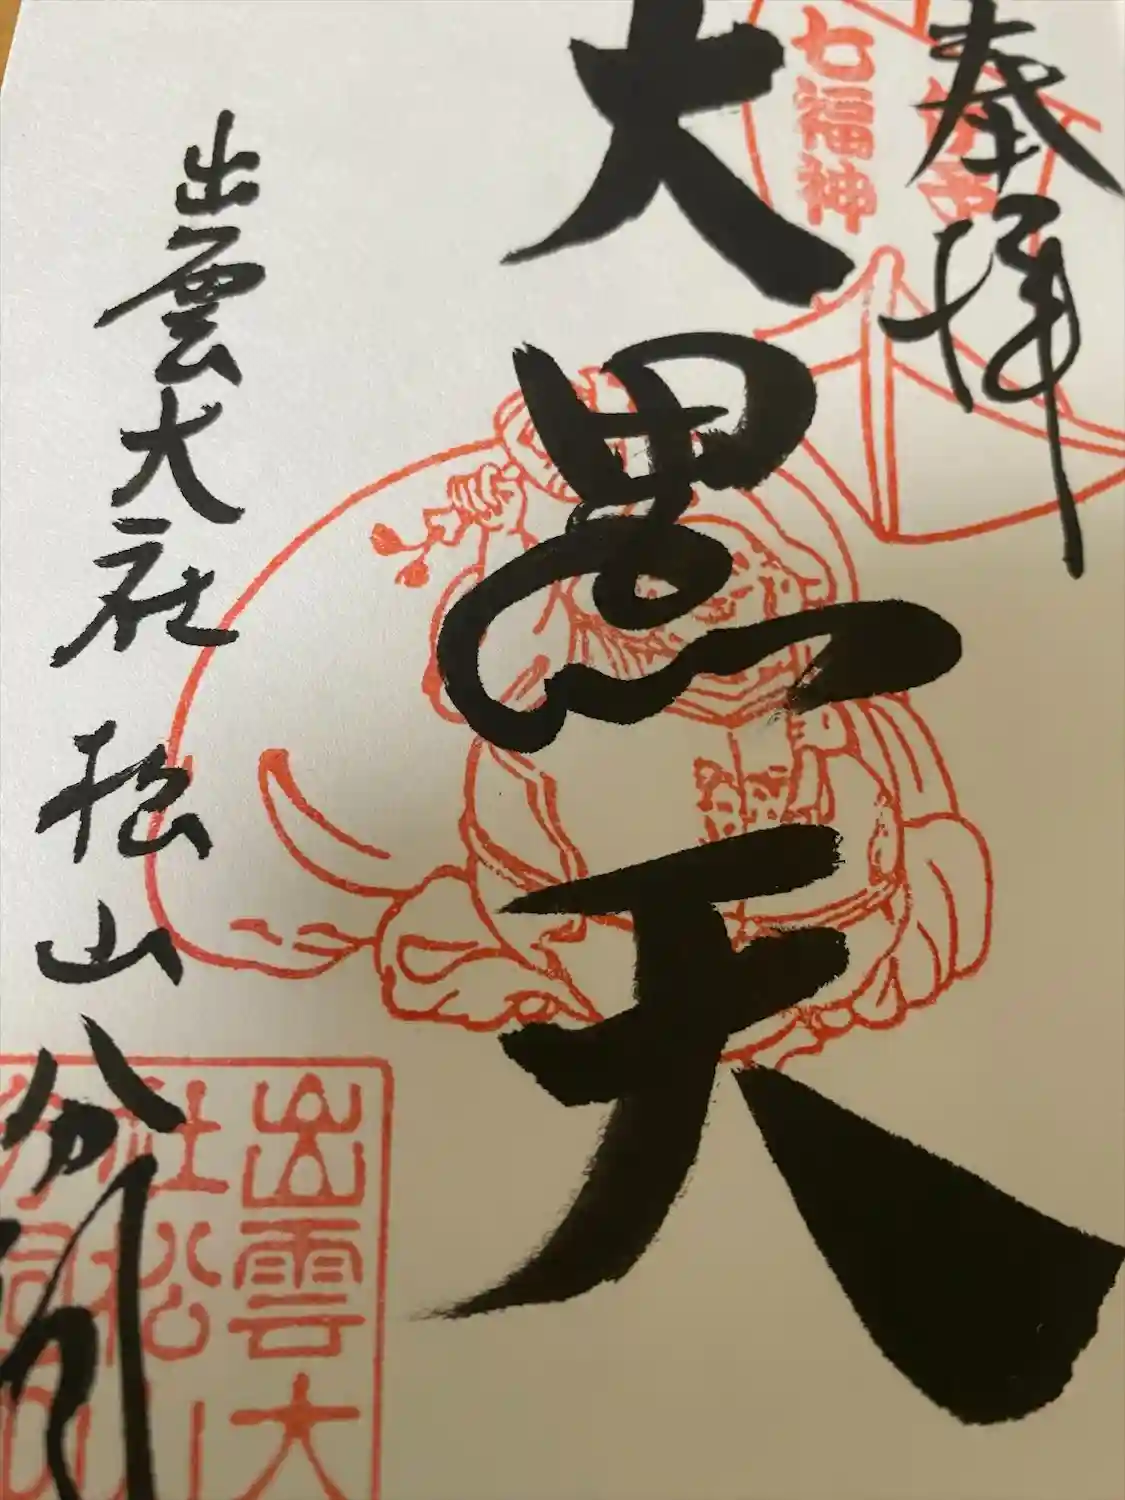 奉拝
七福神
大黒天
出雲大社 松山分祠
出雲大
社松山
分祠